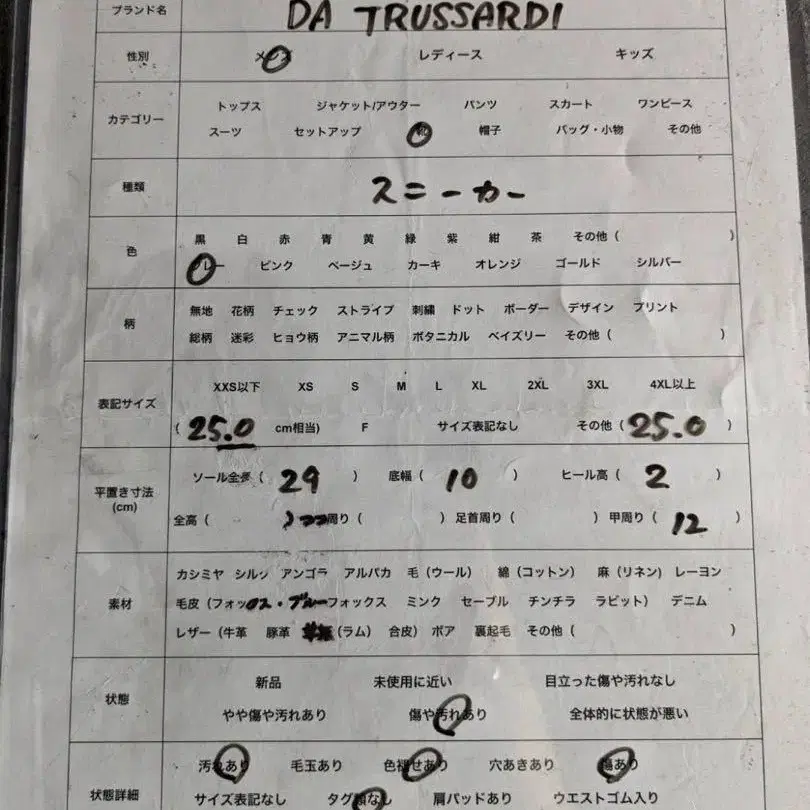 ブランド名 DA TRUSSARDI
性別 メンズ レディース キッズ
カテゴリー トップス ジャケット/アウター パンツ スカート ワンピース
スーツ セットアップ 帽子 バッグ・小物 その他
種類 スニーカー
色 黒 白 赤 青 黄 緑 紫 紺 茶 その他( )
グレー ピンク ベージュ カーキ オレンジ ゴールド シルバー
柄 無地 花柄 チェック ストライプ 刺繍 ドット ボーダー デザイン プリント
総柄 迷彩 ヒョウ柄 アニマル柄 ボタニカル ペイズリー その他( )
表記サイズ XXS以下 XS S M L XL 2XL 3XL 4XL以上
(25.0 cm相当) F サイズ表記なし その他(25.0)
平置き寸法(cm) ソール全長(29) 底幅(10) ヒール高(2)
全高( ) 周り( ) 足首周り( ) 甲周り(12)
素材 カシミヤ シルク アンゴラ アルパカ 毛(ウール) 綿(コットン) 麻(リネン) レーヨン
毛皮(フォックス・ブルーフォックス ミンク セーブル チンチラ ラビット) デニム
レザー(牛革 豚革 (ラム) 合皮) ボア 裏起毛 その他( )
状態 新品 未使用に近い 目立った傷や汚れなし
やや傷や汚れあり 傷や汚れあり 全体的に状態が悪い
状態詳細 汚れあり 毛玉あり 色褪せあり 穴あきあり 傷あり
サイズ表記なし タグ類なし 肩パッドあり ウエストゴム入り